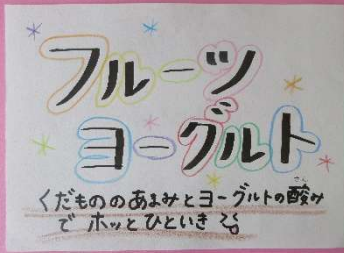 フルーツ
ヨーグルト
くだもののあまみとヨーグルトの酸み
さん
でホッとひといき